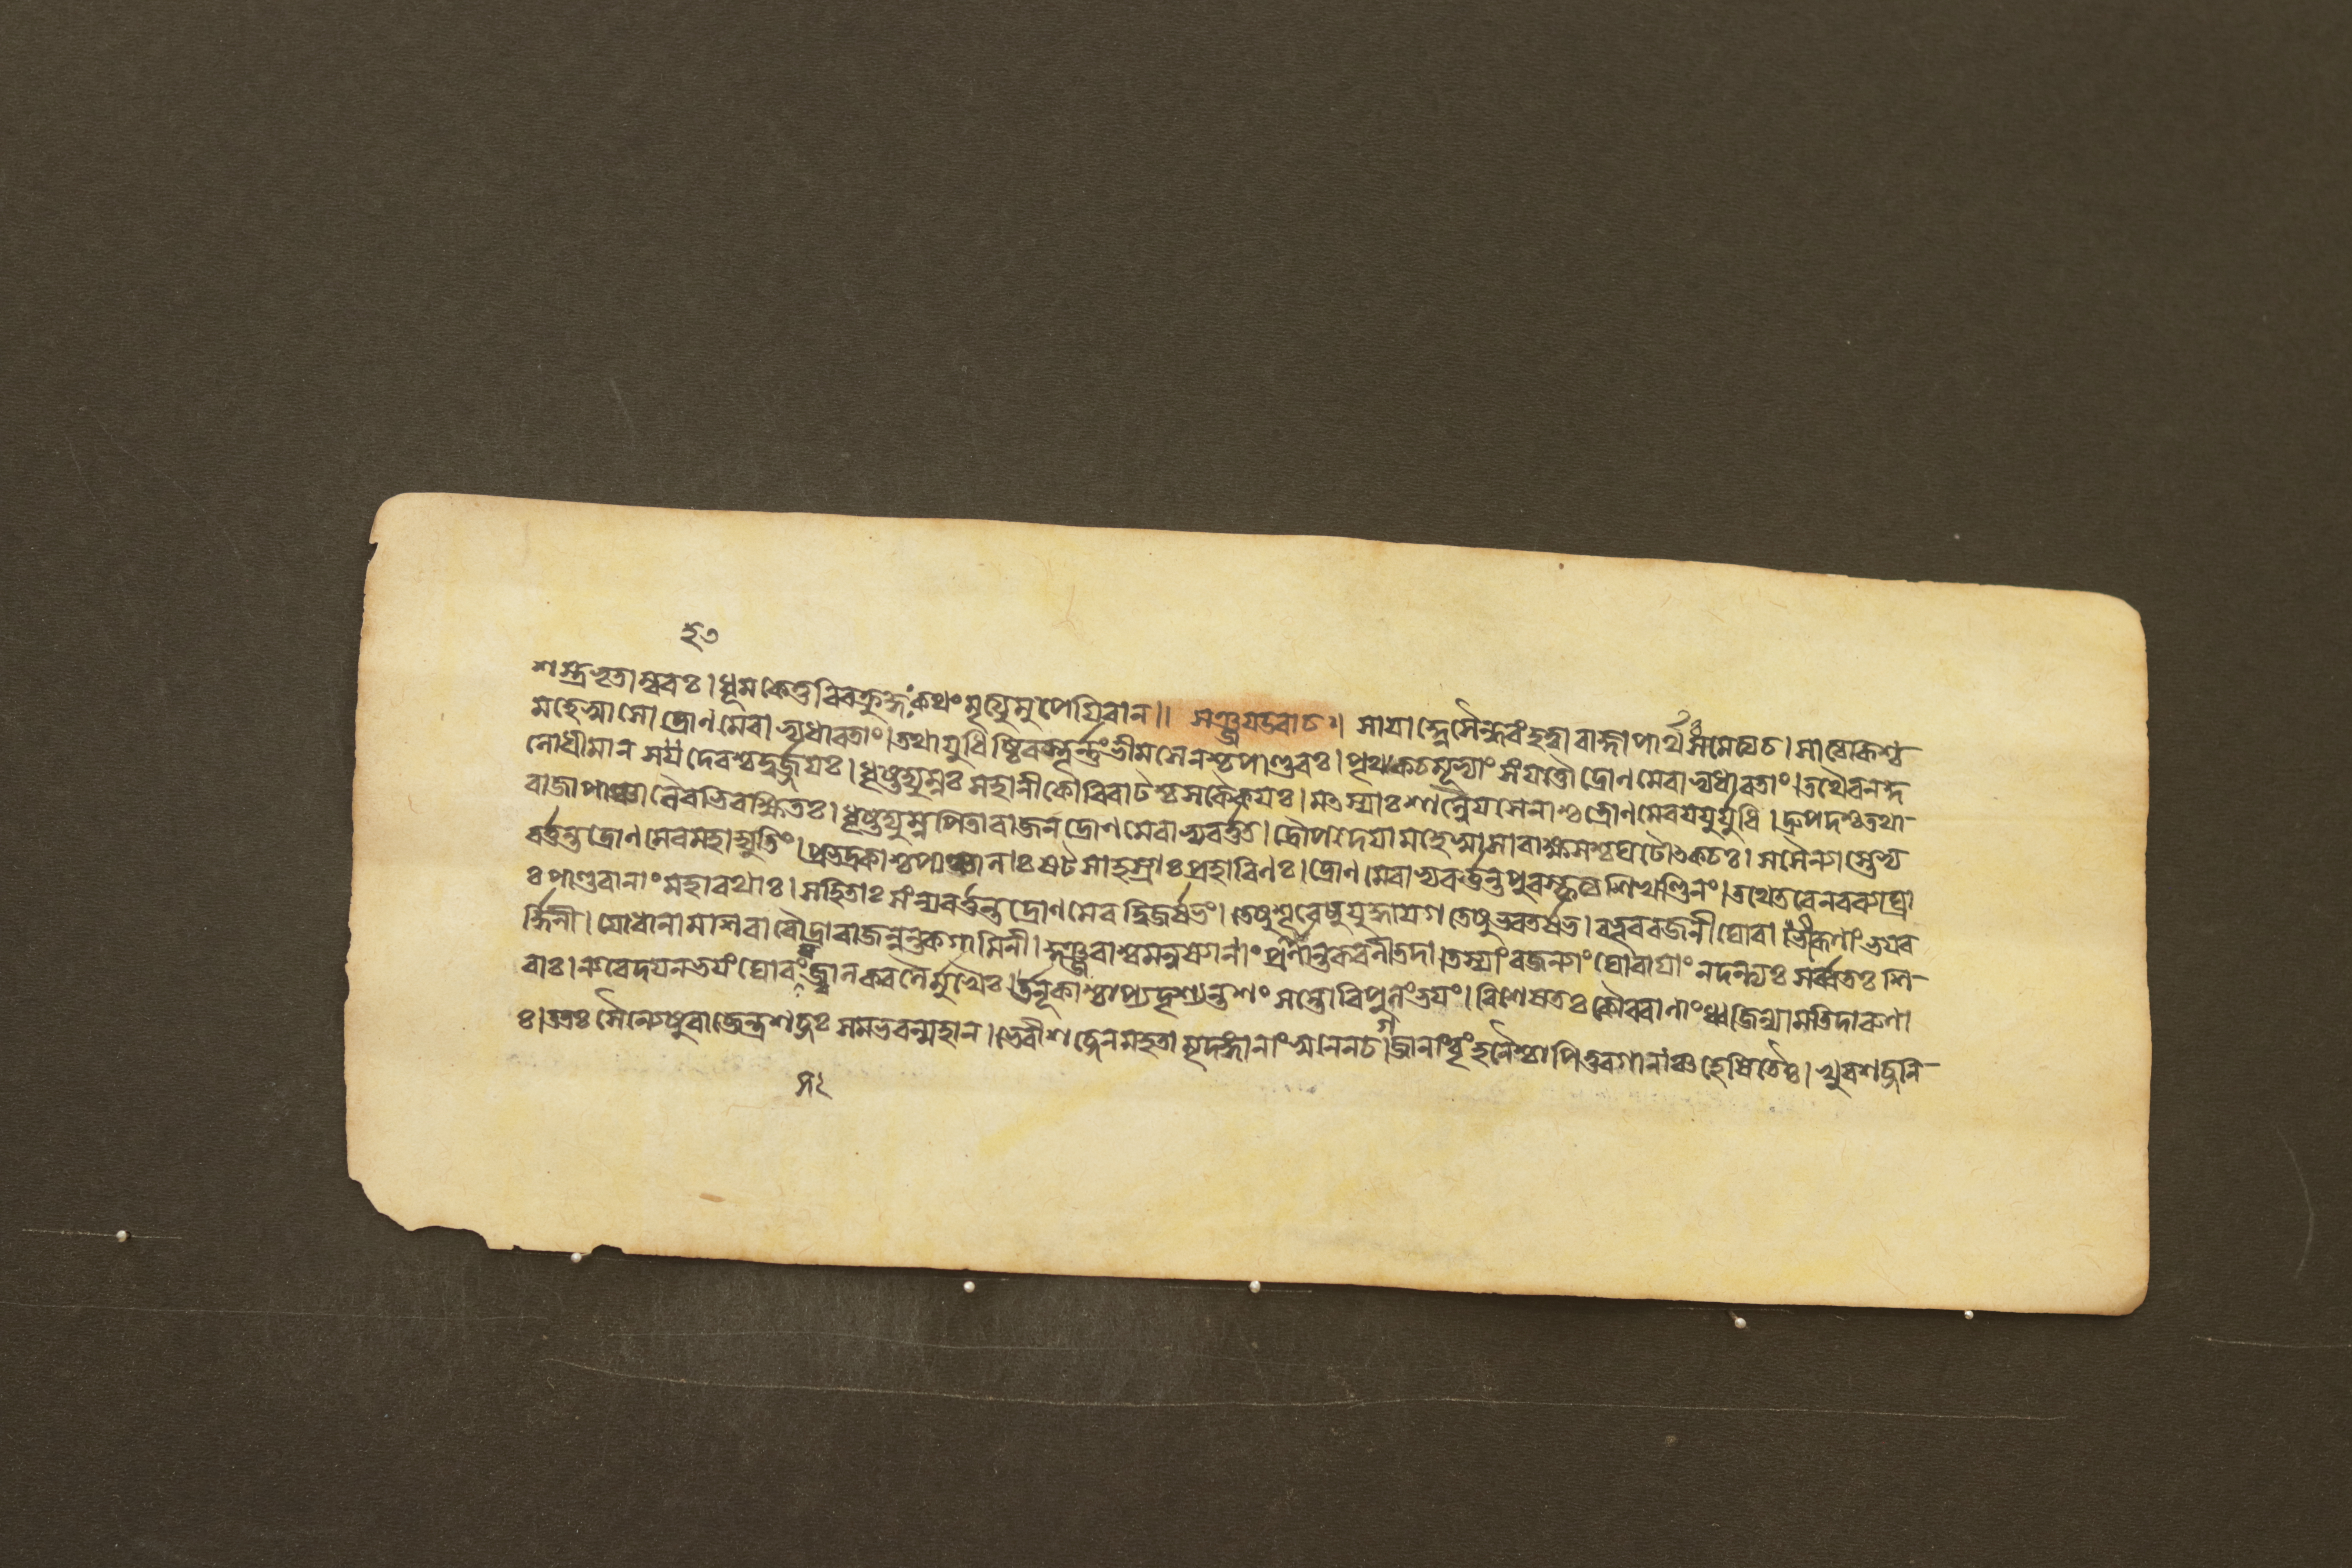 ২৩
শস্ত্রভৃতাম্বরঃ। ধূমকেতুরিবক্রুদ্ধঃ কথং মৃত্যুমুপেয়িবান॥ সঞ্জয়উবাচ॥ সায়াহ্নেসৈন্ধবংহত্বারাজ্ঞাপার্থঃসমেত্যচ। সাত্যকিশ্চ
মহেষ্বাসোদ্রোণমেবাভ্যধাবতাং। তথাযুধিষ্ঠিরস্তূর্ন্নংভীমসেনশ্চপাণ্ডবঃ। পৃথক্চমূভ্যাং সংযাত্তৌদ্রোণমেবাভ্যধাবতাং। তথৈবনকু
লোধীমান সহদেবশ্চদুর্জ্জয়ঃ। ধৃষ্টদ্যুম্নঃ সহানীকৌবিরাটশ্চসকৈকয়ঃ। মৎস্যাঃশাল্বেয়সেনাশ্চদ্রোণমেবযযুর্যুধি। দ্রুপদশ্চতথা-
রাজাপাঞ্চালৈরভিরক্ষিতঃ। ধৃষ্টদ্যুম্নপিতারাজনদ্রোণমেবাভ্যবর্ত্তত। দ্রৌপদেয়ামহেষ্বাসারাক্ষসশ্চঘটোৎকচঃ। সসৈন্যাস্তেভ্য
বর্ত্তন্তদ্রোণমেবমহাদ্যুতিং। প্রভদ্রকাশ্চপাঞ্চালাঃষট্সাহস্রাঃপ্রহারিণঃ। দ্রোণমেবাভ্যবর্ত্তন্তপুরস্কৃত্যশিখণ্ডিনং। তথেতরেনরব্যাঘ্রা
ঃপাণ্ডবানাংমহারথাঃ। সহিতাঃ সংন্যবর্ত্তন্তদ্রোণমেবদ্বিজর্ষভং। তেষুশূরেষুযুদ্ধায়গতেষুভরতর্ষভ। বভূবরজনীঘোরাভীরূণাংভয়ব
র্দ্ধিনী। যোধানামশিবারৌদ্রারাজন্নন্তকগামিনী। কুঞ্জরাশ্বমনুষ্যাণাং প্রাণান্তকরণীতদা। তস্যাংরজন্যাংঘোরায়াং নদন্ত্যঃ সর্ব্বতঃ শি-
বাঃ। ন্যবেদয়নভয়ংঘোরং সজ্বালকবলৈর্মুখৈঃ। উলূকাশ্চাপ্যদৃশ্যন্তশংসন্তোবিপুলংভয়ং। বিশেষতঃ কৌরবাণাংধ্বজিন্যামতিদারুণা
ঃ। ততঃ সৈন্যেষুরাজেন্দ্রশব্দঃ সমভবন্মহান। ভেরীশব্দেনমহতামৃদঙ্গানাংস্বনেনচ। গজানাংবৃংহনৈশ্চাপিতুরগানাঞ্চহেষিতৈঃ। খুরশব্দনি-